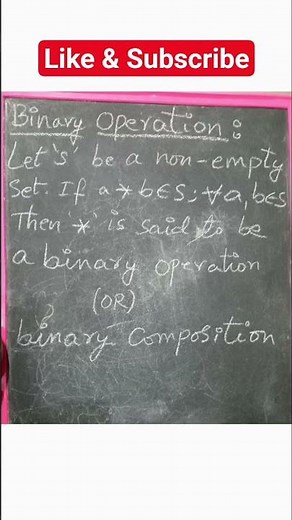 Like & Subscribe
Binary Operation :
Let 'S' be a non-empty
Set. If a * b ∈ S ; ∀ a, b ∈ S
Then '*' is said to be
a binary operation
(OR)
binary Composition